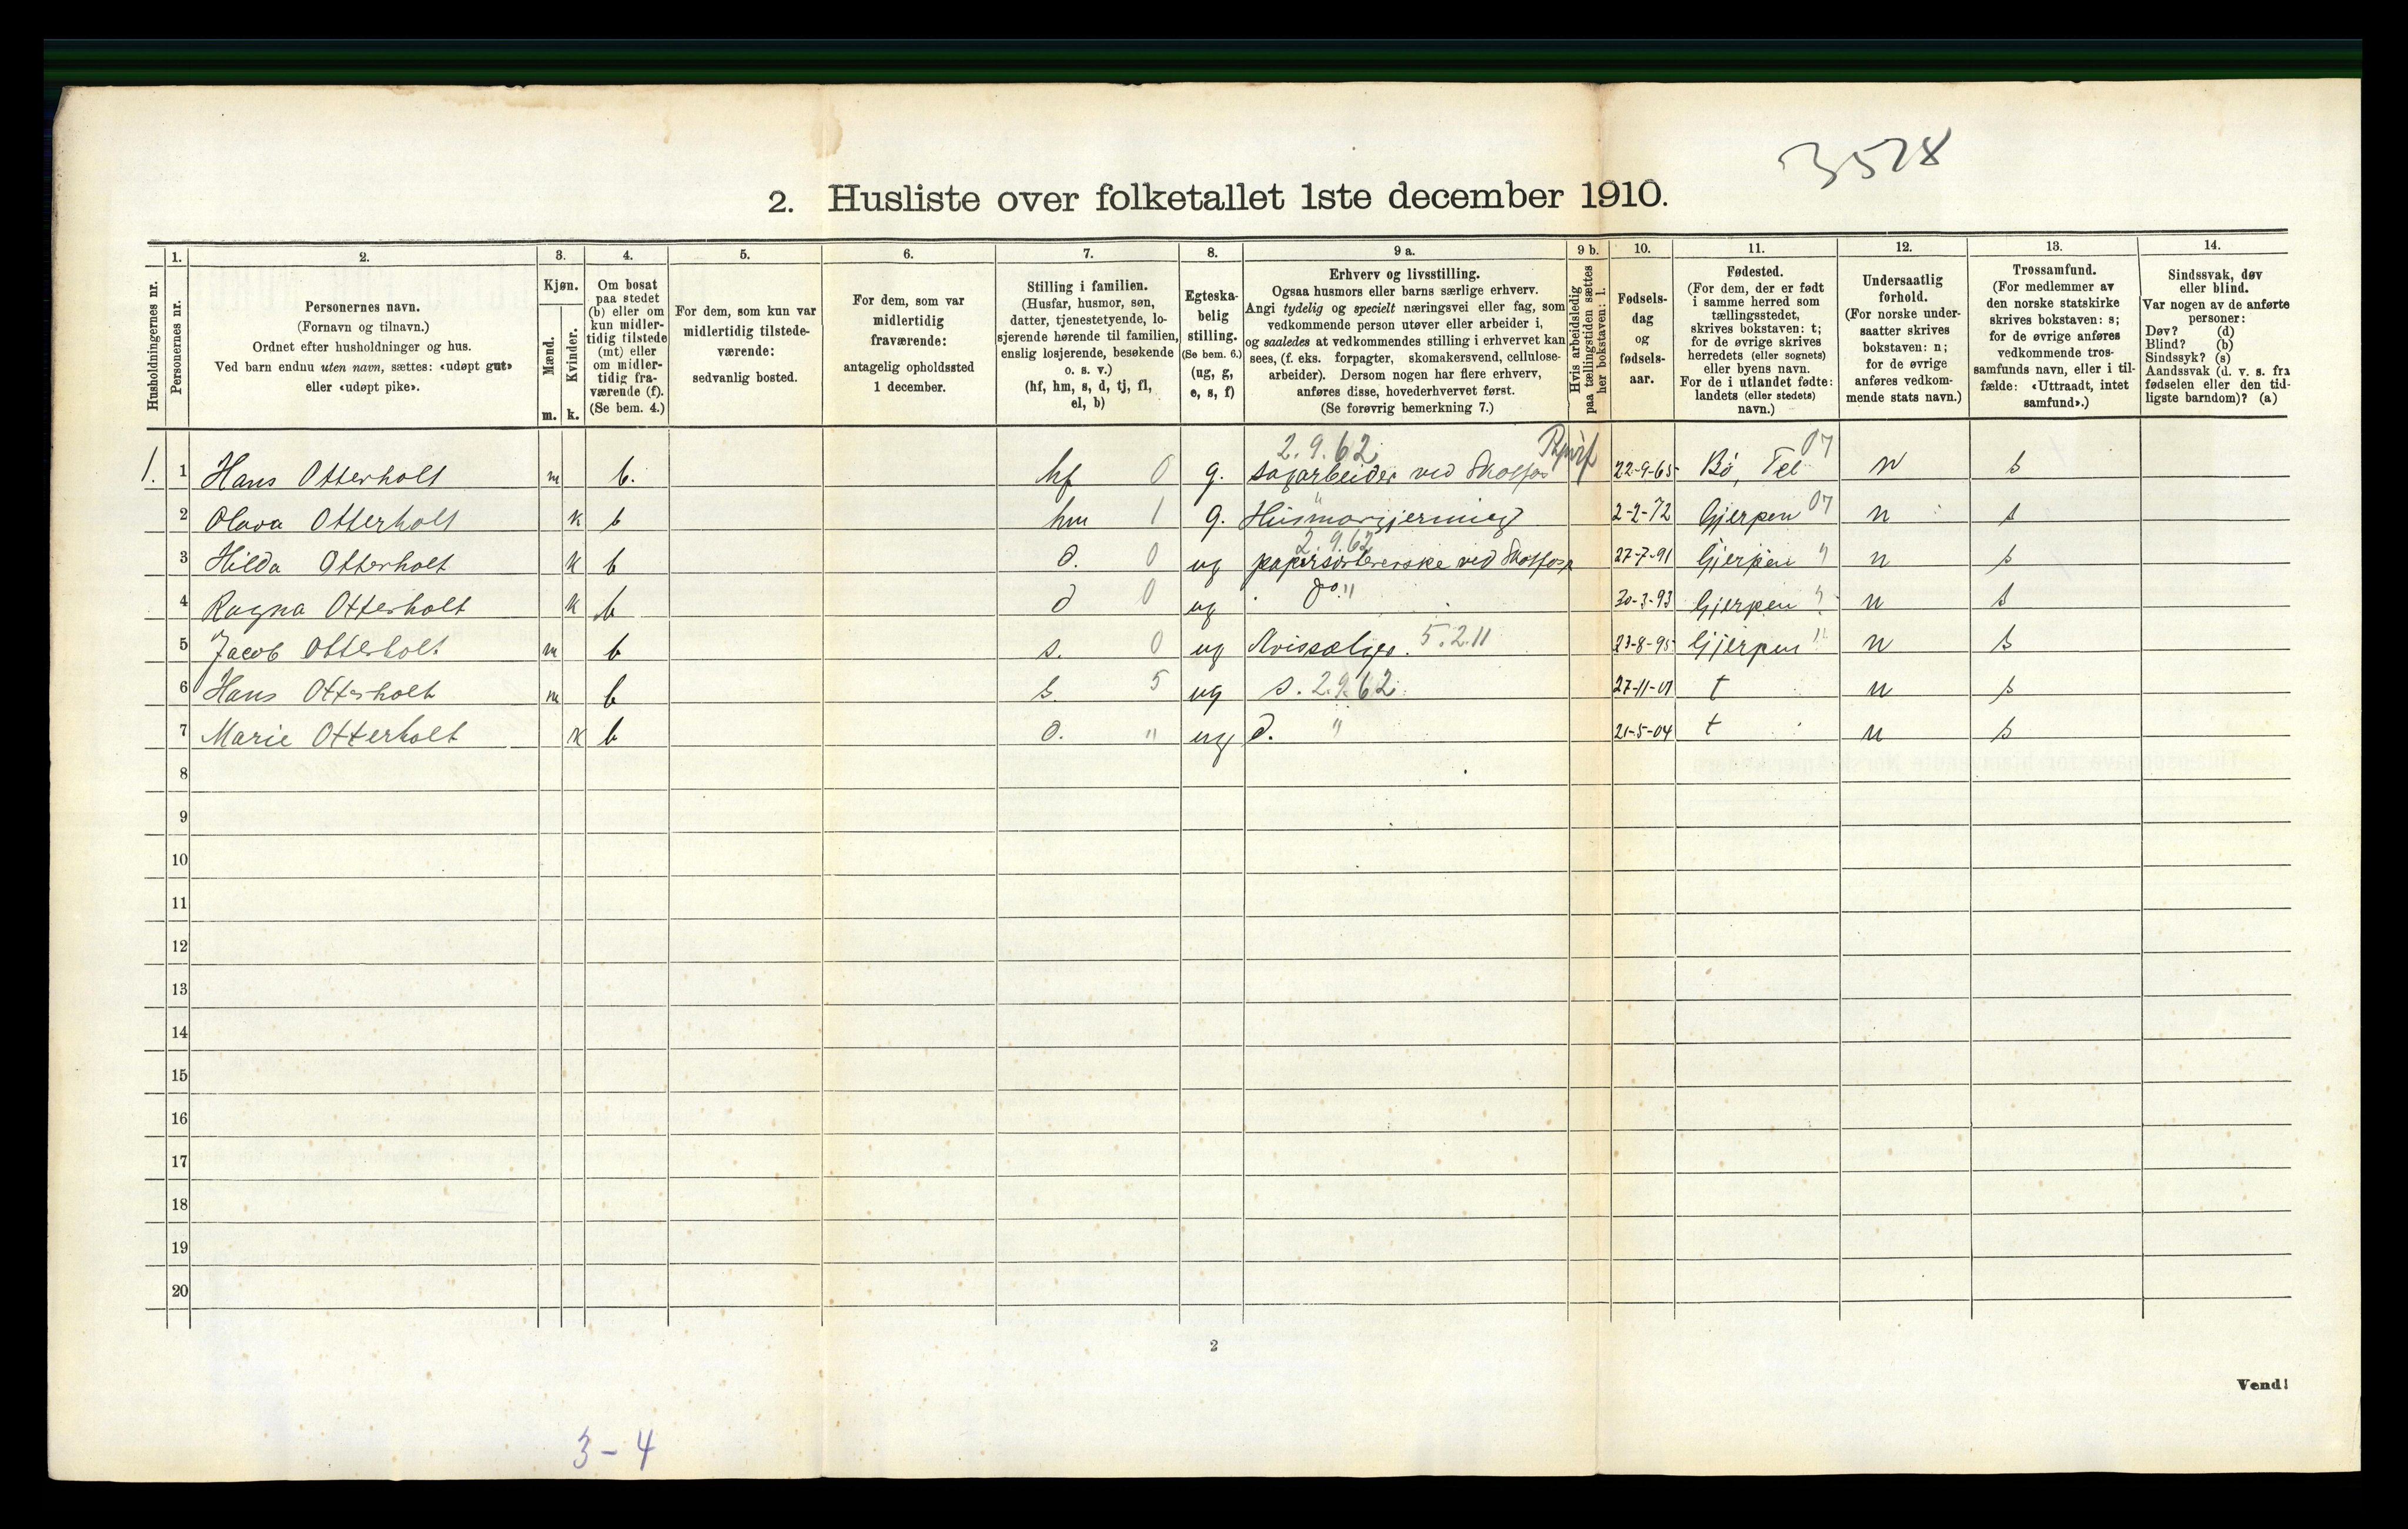 3528
2. Husliste over folketallet 1ste december 1910.
1. 2. 3. 4. 5. 6. 7. 8. 9 a. 9 b. 10. 11. 12. 13. 14.
Husholdningernes nr.
Personernes nr.
Personernes navn.
(Fornavn og tilnavn.)
Ordnet efter husholdninger og hus.
Ved barn endnu uten navn, sættes: «udøpt gut»
eller «udøpt pike».
Kjøn.
Mænd.
Kvinder.
m. k.
Om bosat
paa stedet
(b) eller om
kun midler-
tidig tilstede
(mt) eller
om midler-
tidig fra-
værende (f).
(Se bem. 4.)
For dem, som kun var
midlertidig tilstede-
værende:
sedvanlig bosted.
For dem, som var
midlertidig
fraværende:
antagelig opholdssted
1 december.
Stilling i familien.
(Husfar, husmor, søn,
datter, tjenestetyende, lo-
sjerende hørende til familien,
enslig losjerende, besøkende
o. s. v.)
(hf, hm, s, d, tj, fl,
el, b)
Egteska-
belig
stilling.
(Se bem. 6.)
(ug, g,
e, s, f)
Erhverv og livsstilling.
Ogsaa husmors eller barns særlige erhverv.
Angi tydelig og specielt næringsvei eller fag, som
vedkommende person utøver eller arbeider i,
og saaledes at vedkommendes stilling i erhvervet kan
sees, (f. eks. forpagter, skomakersvend, cellulose-
arbeider). Dersom nogen har flere erhverv,
anføres disse, hovederhvervet først.
(Se forøvrig bemerkning 7.)
Hvis arbeidsledig
paa tællingstiden sættes
her bokstaven: l.
Fødsels-
dag
og
fødsels-
aar.
Fødested.
(For dem, der er født
i samme herred som
tællingsstedet,
skrives bokstaven: t;
for de øvrige skrives
herredets (eller sognets)
eller byens navn.
For de i utlandet fødte:
landets (eller stedets)
navn.)
Undersaatlig
forhold.
(For norske under-
saatter skrives
bokstaven: n;
for de øvrige
anføres vedkom-
mende stats navn.)
Trossamfund.
(For medlemmer av
den norske statskirke
skrives bokstaven: s;
for de øvrige anføres
vedkommende tros-
samfunds navn, eller i til-
fælde: «Uttraadt, intet
samfund».)
Sindssvak, døv
eller blind.
Var nogen av de anførte
personer:
Døv? (d)
Blind? (b)
Sindssyk? (s)
Aandssvak (d. v. s. fra
fødselen eller den tid-
ligste barndom)? (a)
2.9.62 07
1. 1 Hans Otterholt m b. hf 0 g. sagarbeider ved Skotfos 22-9-65 Bø, Tel n s
2 Olava Otterholt k b hm 1 g. Husmorgjerning 2-2-72 Gjerpen 07 n s
2.9.62
3 Hilda Otterholt k b d. 0 ug papirsortererske ved Skotfos 27-7-91 Gjerpen " n s
4 Ragna Otterholt k b d 0 ug do. " 30-3-93 Gjerpen " n s
5 Jacob Otterholt m b s. 0 ug Avissælger. 5.2.11 23-8-95 Gjerpen " n s
6 Hans Otterholt m b s. 5 ug s. 2.9.62 27-11-01 t n s
7 Marie Otterholt k b d. " ug d. " 21-5-04 t n s
8
9
10
11
12
13
14
15
16
17
18
19
20
2
Vend!
3-4